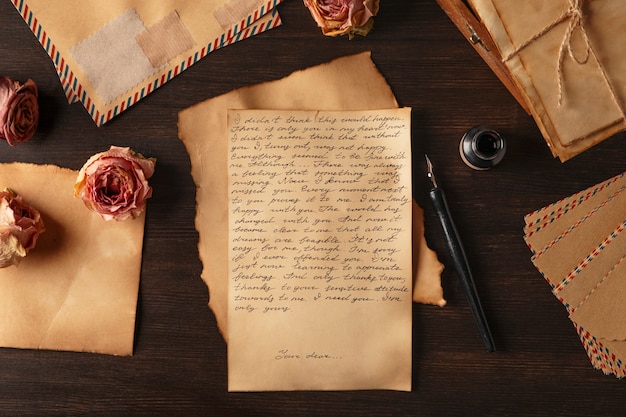 I didn't think this would happen.
There is only you in my heart now.
I didn't even think that without
you I turns out, was not happy.
Everything seemed to be fine with
me although... There was always
a feeling that something was
missing. Now I know that I
missed you. Every moment next
to you proves it to me. I am truly
happy with you. The world has
changed with you. And now it
became clear to me that all my
dreams are feasible. It's not
easy for me, though. I'm sorry
if I ever offended you. I'm
just now learning to appreciate
feelings. And only thanks to you,
thanks to your sensitive attitude
towards to me I need you. I'm
only yours
Your dear...